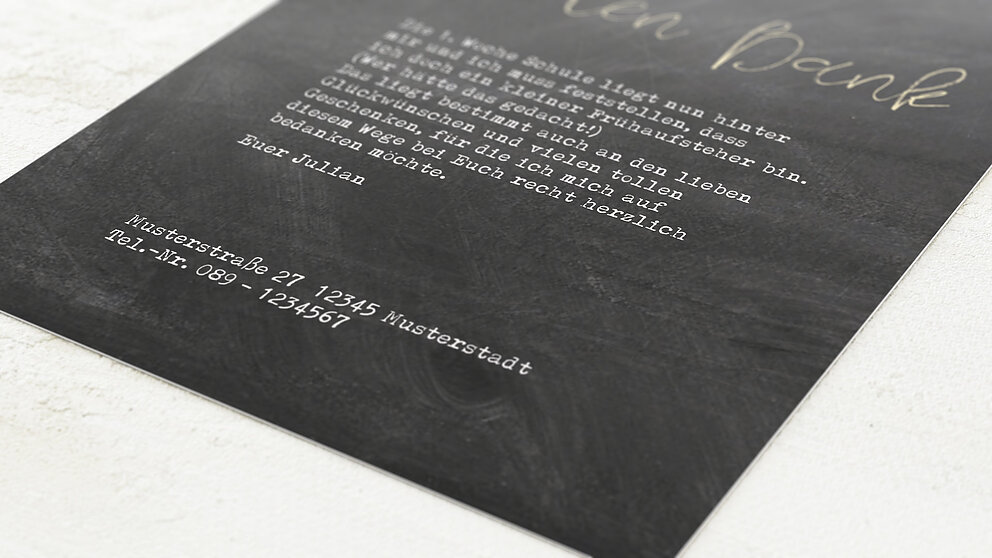 len Dank
Die 1. Woche Schule liegt nun hinter
mir und ich muss feststellen, dass
ich doch ein kleiner Frühaufsteher bin.
(Wer hätte das gedacht!)
Das liegt bestimmt auch an den lieben
Glückwünschen und vielen tollen
Geschenken, für die ich mich auf
diesem Wege bei Euch recht herzlich
bedanken möchte.
Euer Julian
Musterstraße 27 12345 Musterstadt
Tel.-Nr. 089 - 1234567